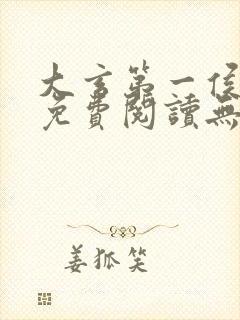 大言第一侯
免費閱讀無
姜狐笑